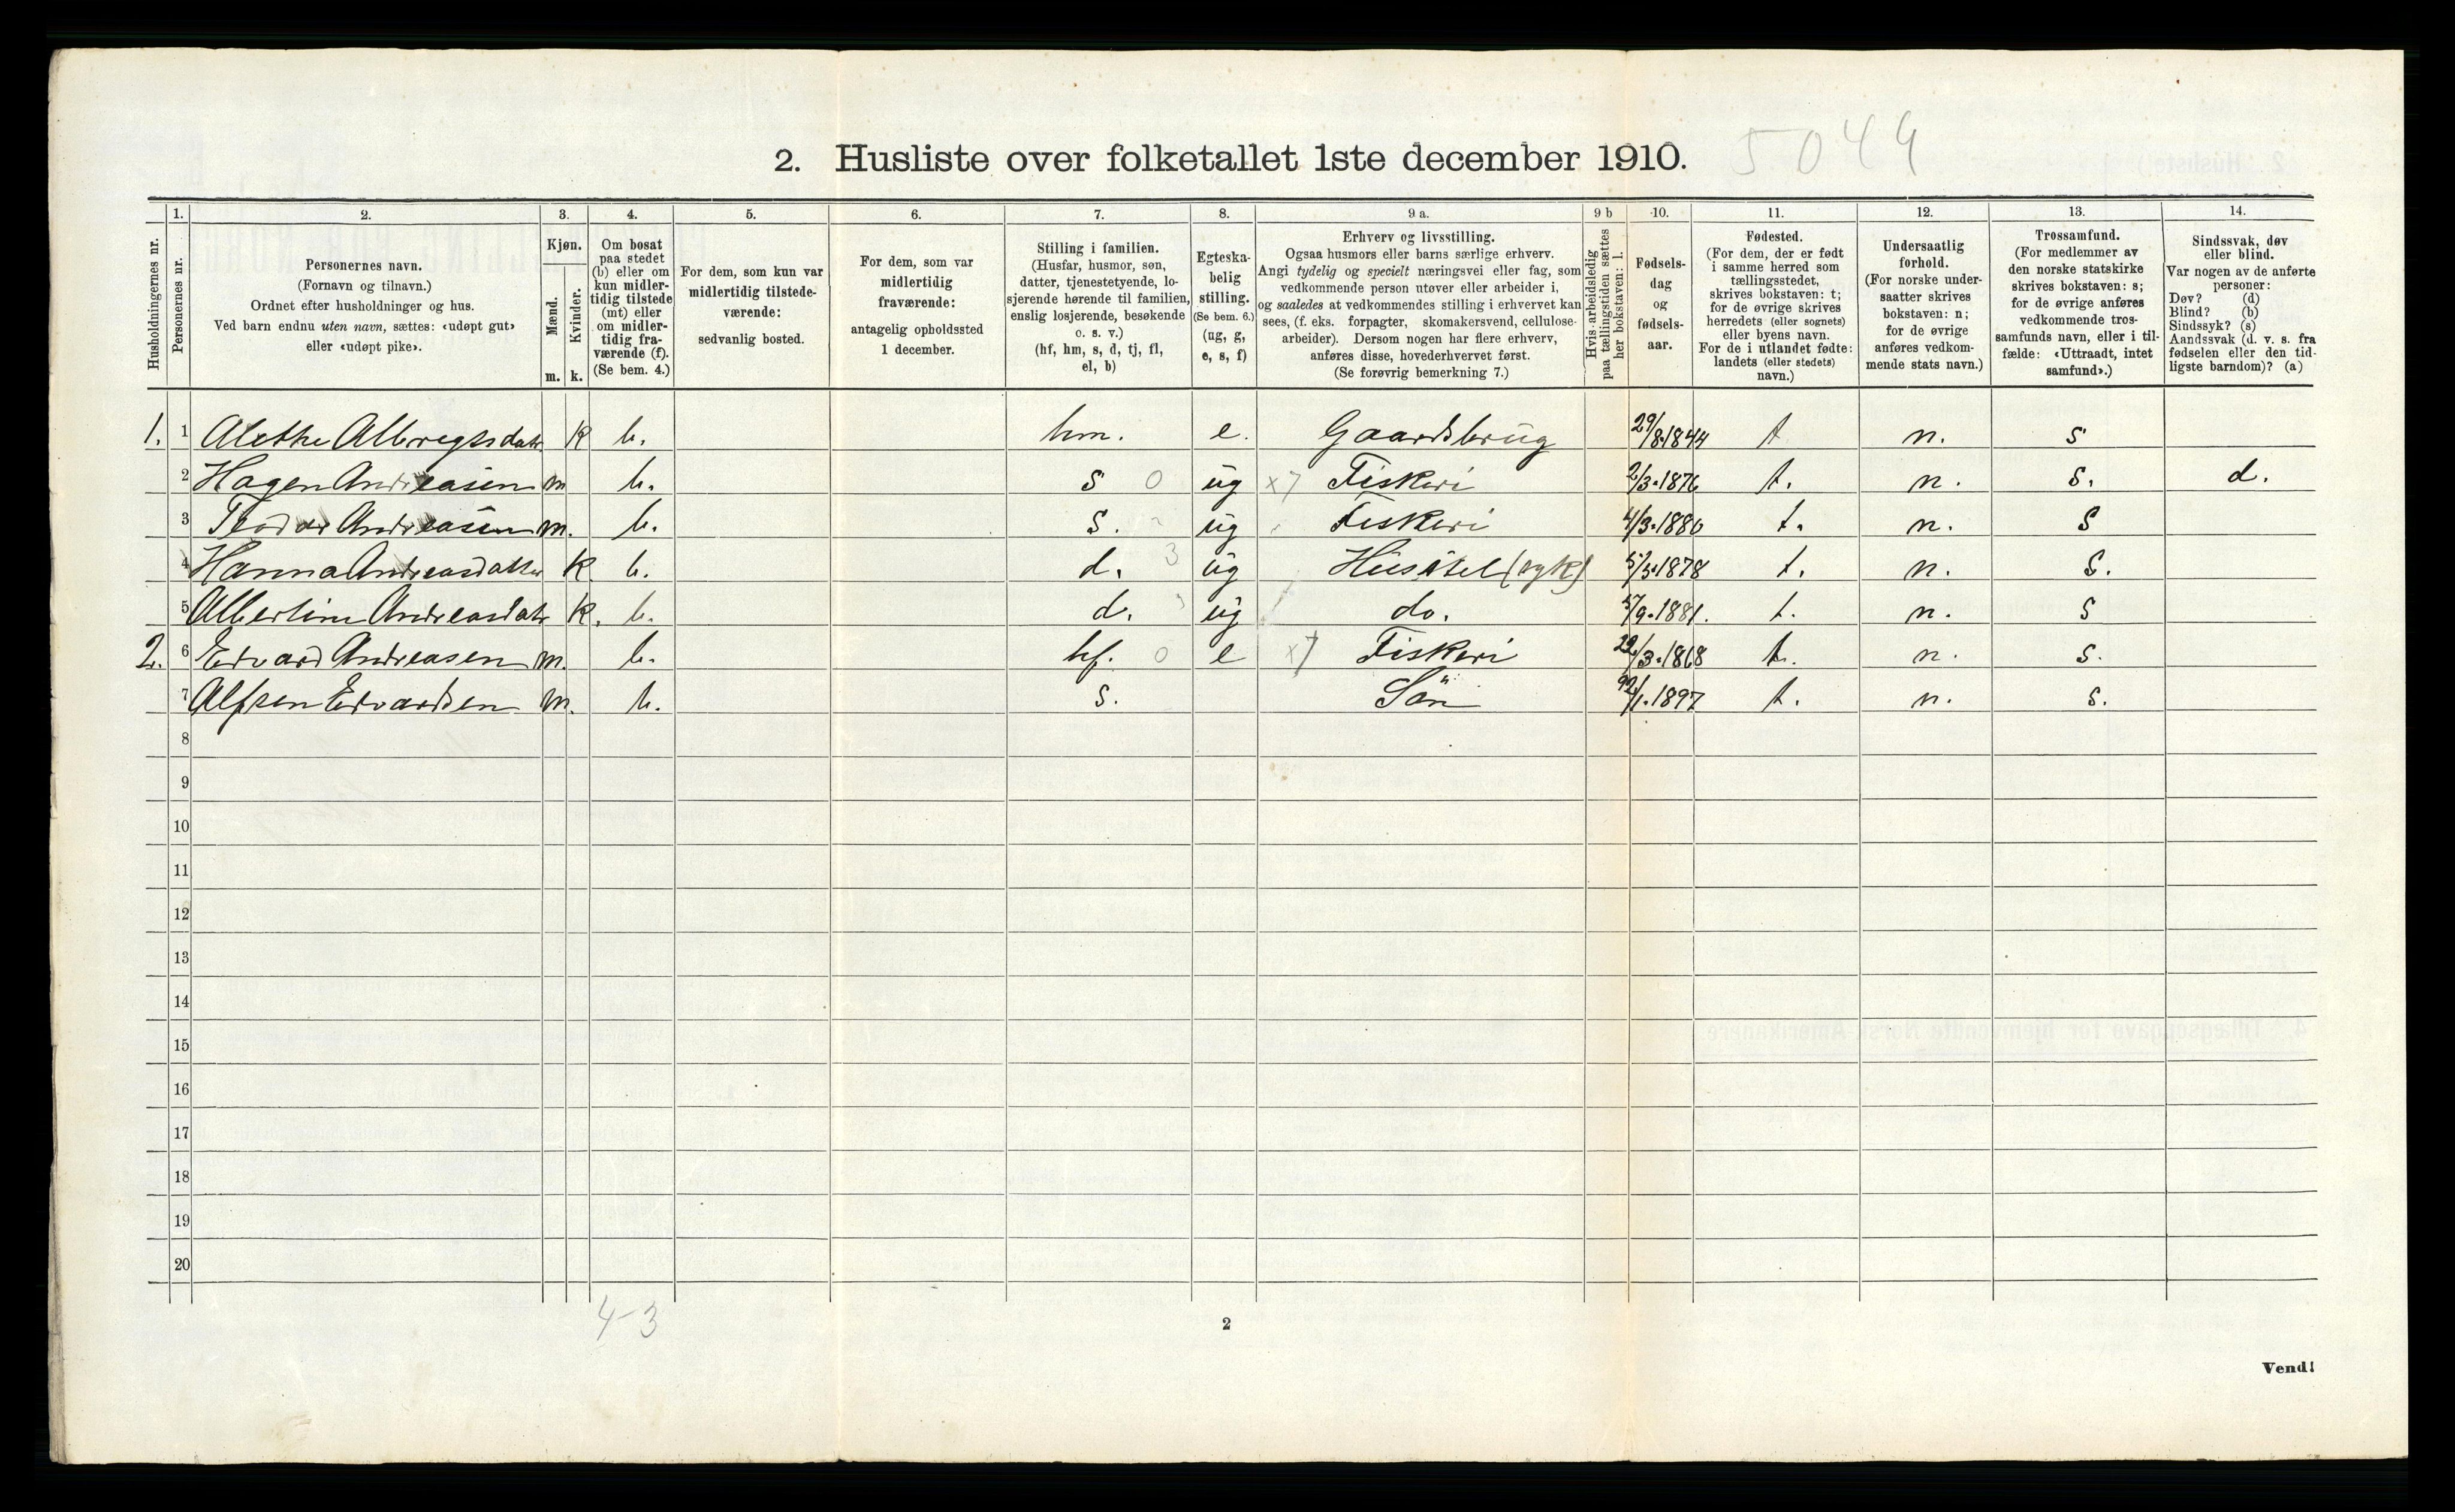 2. Husliste over folketallet 1ste december 1910. 5044
Husholdningernes nr.
1. Personernes nr.
2. Personernes navn.
(Fornavn og tilnavn.)
Ordnet efter husholdninger og hus.
Ved barn endnu uten navn, sættes: «udøpt gut»
eller «udøpt pike».
3. Kjøn.
Mænd. Kvinder.
m. k.
4. Om bosat
paa stedet
(b) eller om
kun midler-
tidig tilstede
(mt) eller
om midler-
tidig fra-
værende (f).
(Se bem. 4.)
5. For dem, som kun var
midlertidig tilstede-
værende:
sedvanlig bosted.
6. For dem, som var
midlertidig
fraværende:
antagelig opholdssted
1 december.
7. Stilling i familien.
(Husfar, husmor, søn,
datter, tjenestetyende, lo-
sjerende hørende til familien,
enslig losjerende, besøkende
o. s. v.)
(hf, hm, s, d, tj, fl,
el, b)
8. Egteska-
belig
stilling.
(Se bem. 6.)
(ug, g,
e, s, f)
9 a. Erhverv og livsstilling.
Ogsaa husmors eller barns særlige erhverv.
Angi tydelig og specielt næringsvei eller fag, som
vedkommende person utøver eller arbeider i,
og saaledes at vedkommendes stilling i erhvervet kan
sees, (f. eks. forpagter, skomakersvend, cellulose-
arbeider). Dersom nogen har flere erhverv,
anføres disse, hovederhvervet først.
(Se forøvrig bemerkning 7.)
9 b Hvis arbeidsledig
paa tællingstiden sættes
her bokstaven: l.
10. Fødsels-
dag
og
fødsels-
aar.
11. Fødested.
(For dem, der er født
i samme herred som
tællingsstedet,
skrives bokstaven: t;
for de øvrige skrives
herredets (eller sognets)
eller byens navn.
For de i utlandet fødte:
landets (eller stedets)
navn.)
12. Undersaatlig
forhold.
(For norske under-
saatter skrives
bokstaven: n;
for de øvrige
anføres vedkom-
mende stats navn.)
13. Trossamfund.
(For medlemmer av
den norske statskirke
skrives bokstaven: s;
for de øvrige anføres
vedkommende tros-
samfunds navn, eller i til-
fælde: «Uttraadt, intet
samfund».)
14. Sindssvak, døv
eller blind.
Var nogen av de anførte
personer:
Døv? (d)
Blind? (b)
Sindssyk? (s)
Aandssvak (d. v. s. fra
fødselen eller den tid-
ligste barndom)? (a)
1. 1 Alethe Albregtsdatr k b. hm. e. Gaardsbrug 29/8.1844 t n. s
2 Hagen Andreasen m b. s 0 ug x7 Fiskeri 2/3.1876 t. n. s. d.
3 Teodor Andreasen m. b. s. ug Fiskeri 4/3.1880 t. n. s
4 Hanna Andreasdatter k. b. d. 3 ug Husstel (syk) 1878 t. n. s.
5 Albertine Andreasdatr k. b. d. ug do. 1881. t. n. s
2. 6 Edvard Andreasen m. b. hf. 0 e x7 Fiskeri 22/3.1868 t. n. s.
7 Edvardsen m. b. s. Sön 1897 t. n. s.
8
9
10
11
12
13
14
15
16
17
18
19
20
4-3
2
Vend!